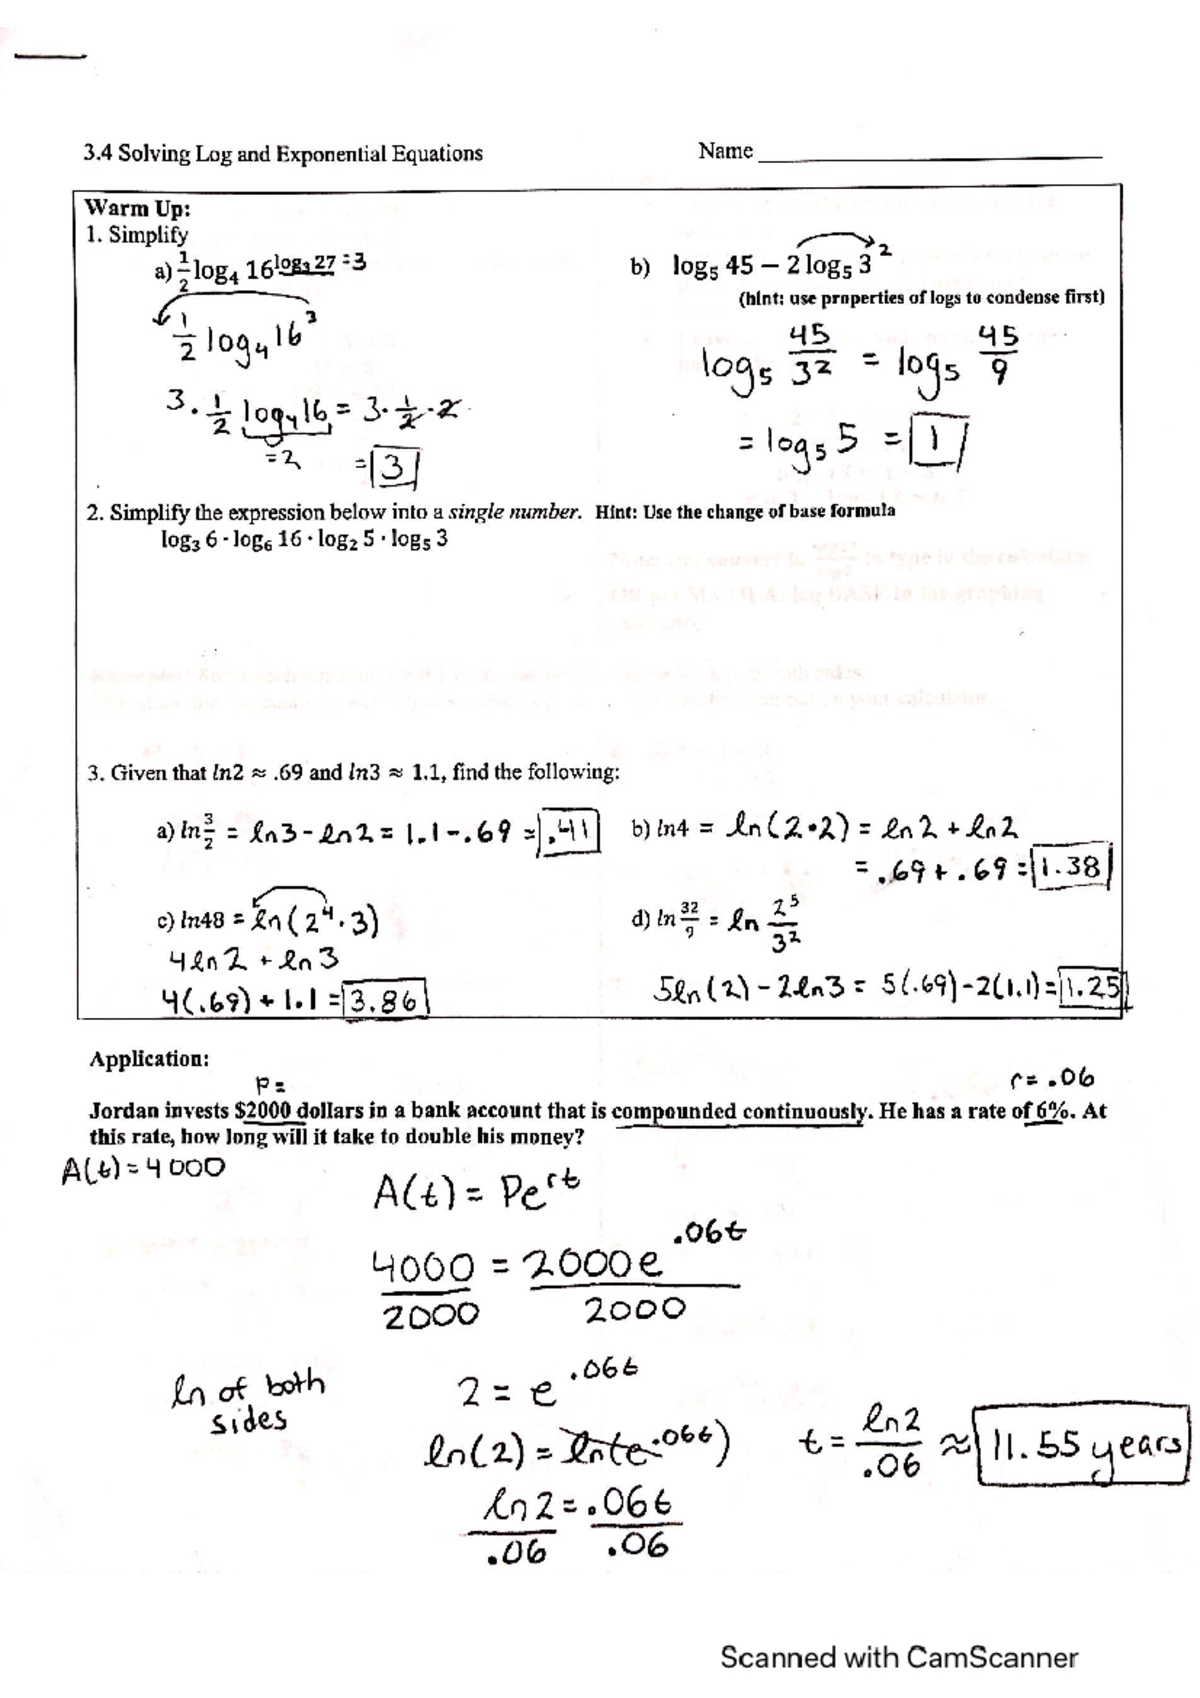 3.4 Solving Log and Exponential Equations Name
Warm Up:
1. Simplify
a) 1/2 log₄ 16^(log₃ 27) =3
b) log₅ 45 – 2 log₅ 3 ²
(hint: use properties of logs to condense first)
1/2 log₄ 16³
log₅ 45/3² = log₅ 45/9
3 · 1/2 log₄ 16 = 3 · 1/2 · 2
= log₅ 5 = 1
=2 = 3
2. Simplify the expression below into a single number. Hint: Use the change of base formula
log₃ 6 · log₆ 16 · log₂ 5 · log₅ 3
3. Given that ln2 ≈ .69 and ln3 ≈ 1.1, find the following:
a) ln 3/2 = ln3 - ln2 = 1.1 - .69 = .41
b) ln4 = ln(2·2) = ln2 + ln2
= .69 + .69 = 1.38
c) ln48 = ln(2⁴·3)
4ln2 + ln3
4(.69) + 1.1 = 3.86
d) ln 32/9 = ln 2⁵/3²
5ln(2) - 2ln3 = 5(.69) - 2(1.1) = 1.25
Application:
P= r= .06
Jordan invests $2000 dollars in a bank account that is compounded continuously. He has a rate of 6%. At
this rate, how long will it take to double his money?
A(t) = 4000
A(t) = Pe^rt
4000/2000 = 2000e^.06t/2000
ln of both
sides
2 = e^.06t
ln(2) = ln(e^.06t)
ln2/.06 = .06t/.06
t = ln2/.06 ≈ 11.55 years
Scanned with CamScanner